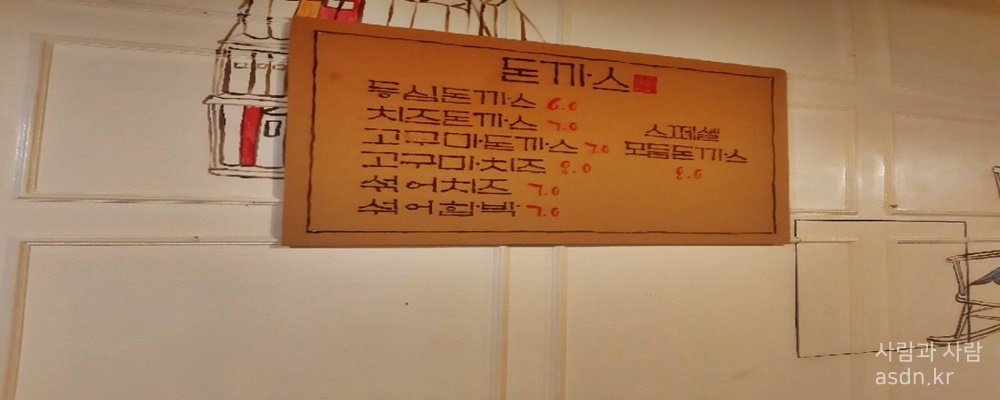 돈까스
등심돈까스 6.0
치즈돈까스 7.0
고구마돈까스 7.0
고구마치즈 8.0
섞어치즈 7.0
섞어함박 7.0
스페셜
모듬돈까스
8.0
사람과 사람
asdn.kr